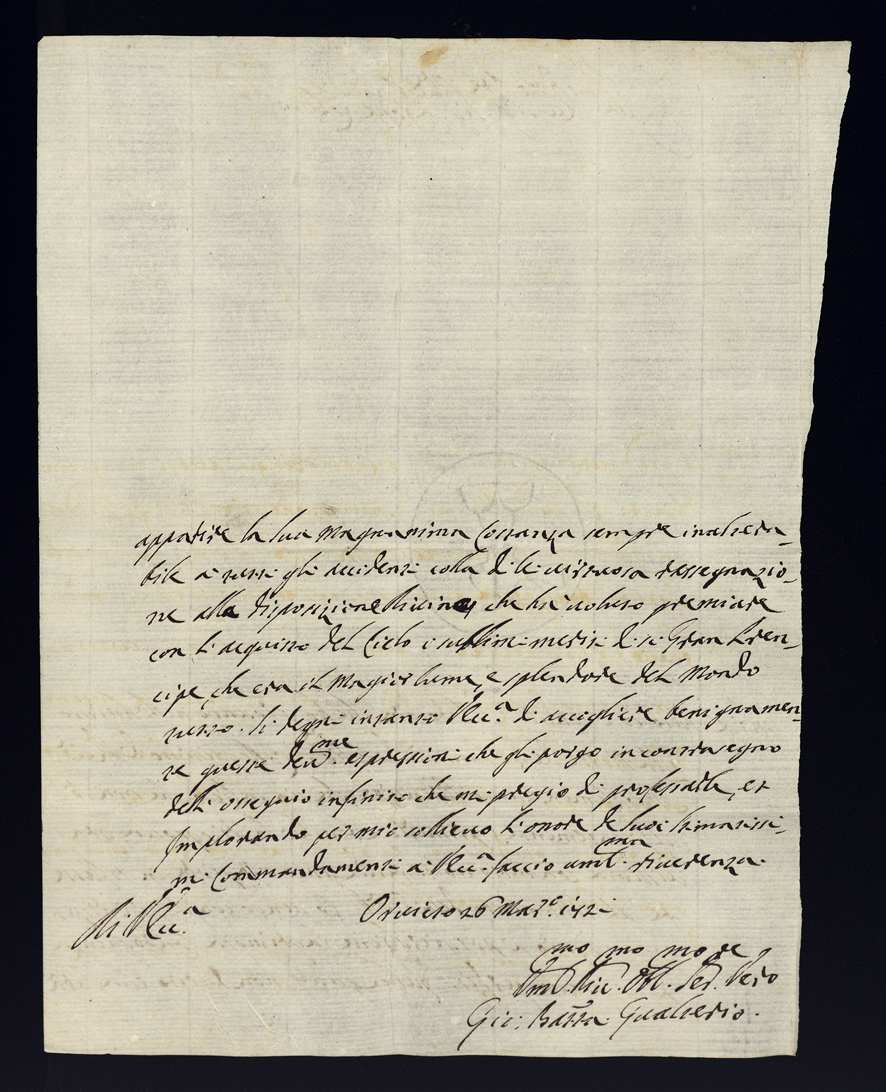 apparire la sua magnanima Costanza sempre inaltera=
bile à tutti gli accidenti colla di lei virtuosa rassegnazio=
ne alla disposizione Divina, che hà voluto premiare
con l'acquisto del Cielo i sublimi meriti di si Gran Pren=
cipe, che era il Magior lume, e splendore del Mondo
tutto. Si degni intanto V. Ecc.ª di accogliere benignamen=
te queste dev.me espressioni che gli porgo in contrasegno
dell'ossequio infinito che mi pregio di professarle, et
Implorando per mio sollievo l'onore de suoi stimatissi=
mi Commandamenti à V. Ecc.ª faccio umil.ma riverenza.
Di V. Ecc.ª Orvieto 26 Mar.º
Um.mo Div.mo Obl.mo Ser.re Vero
Gio: Batta Gualterio.